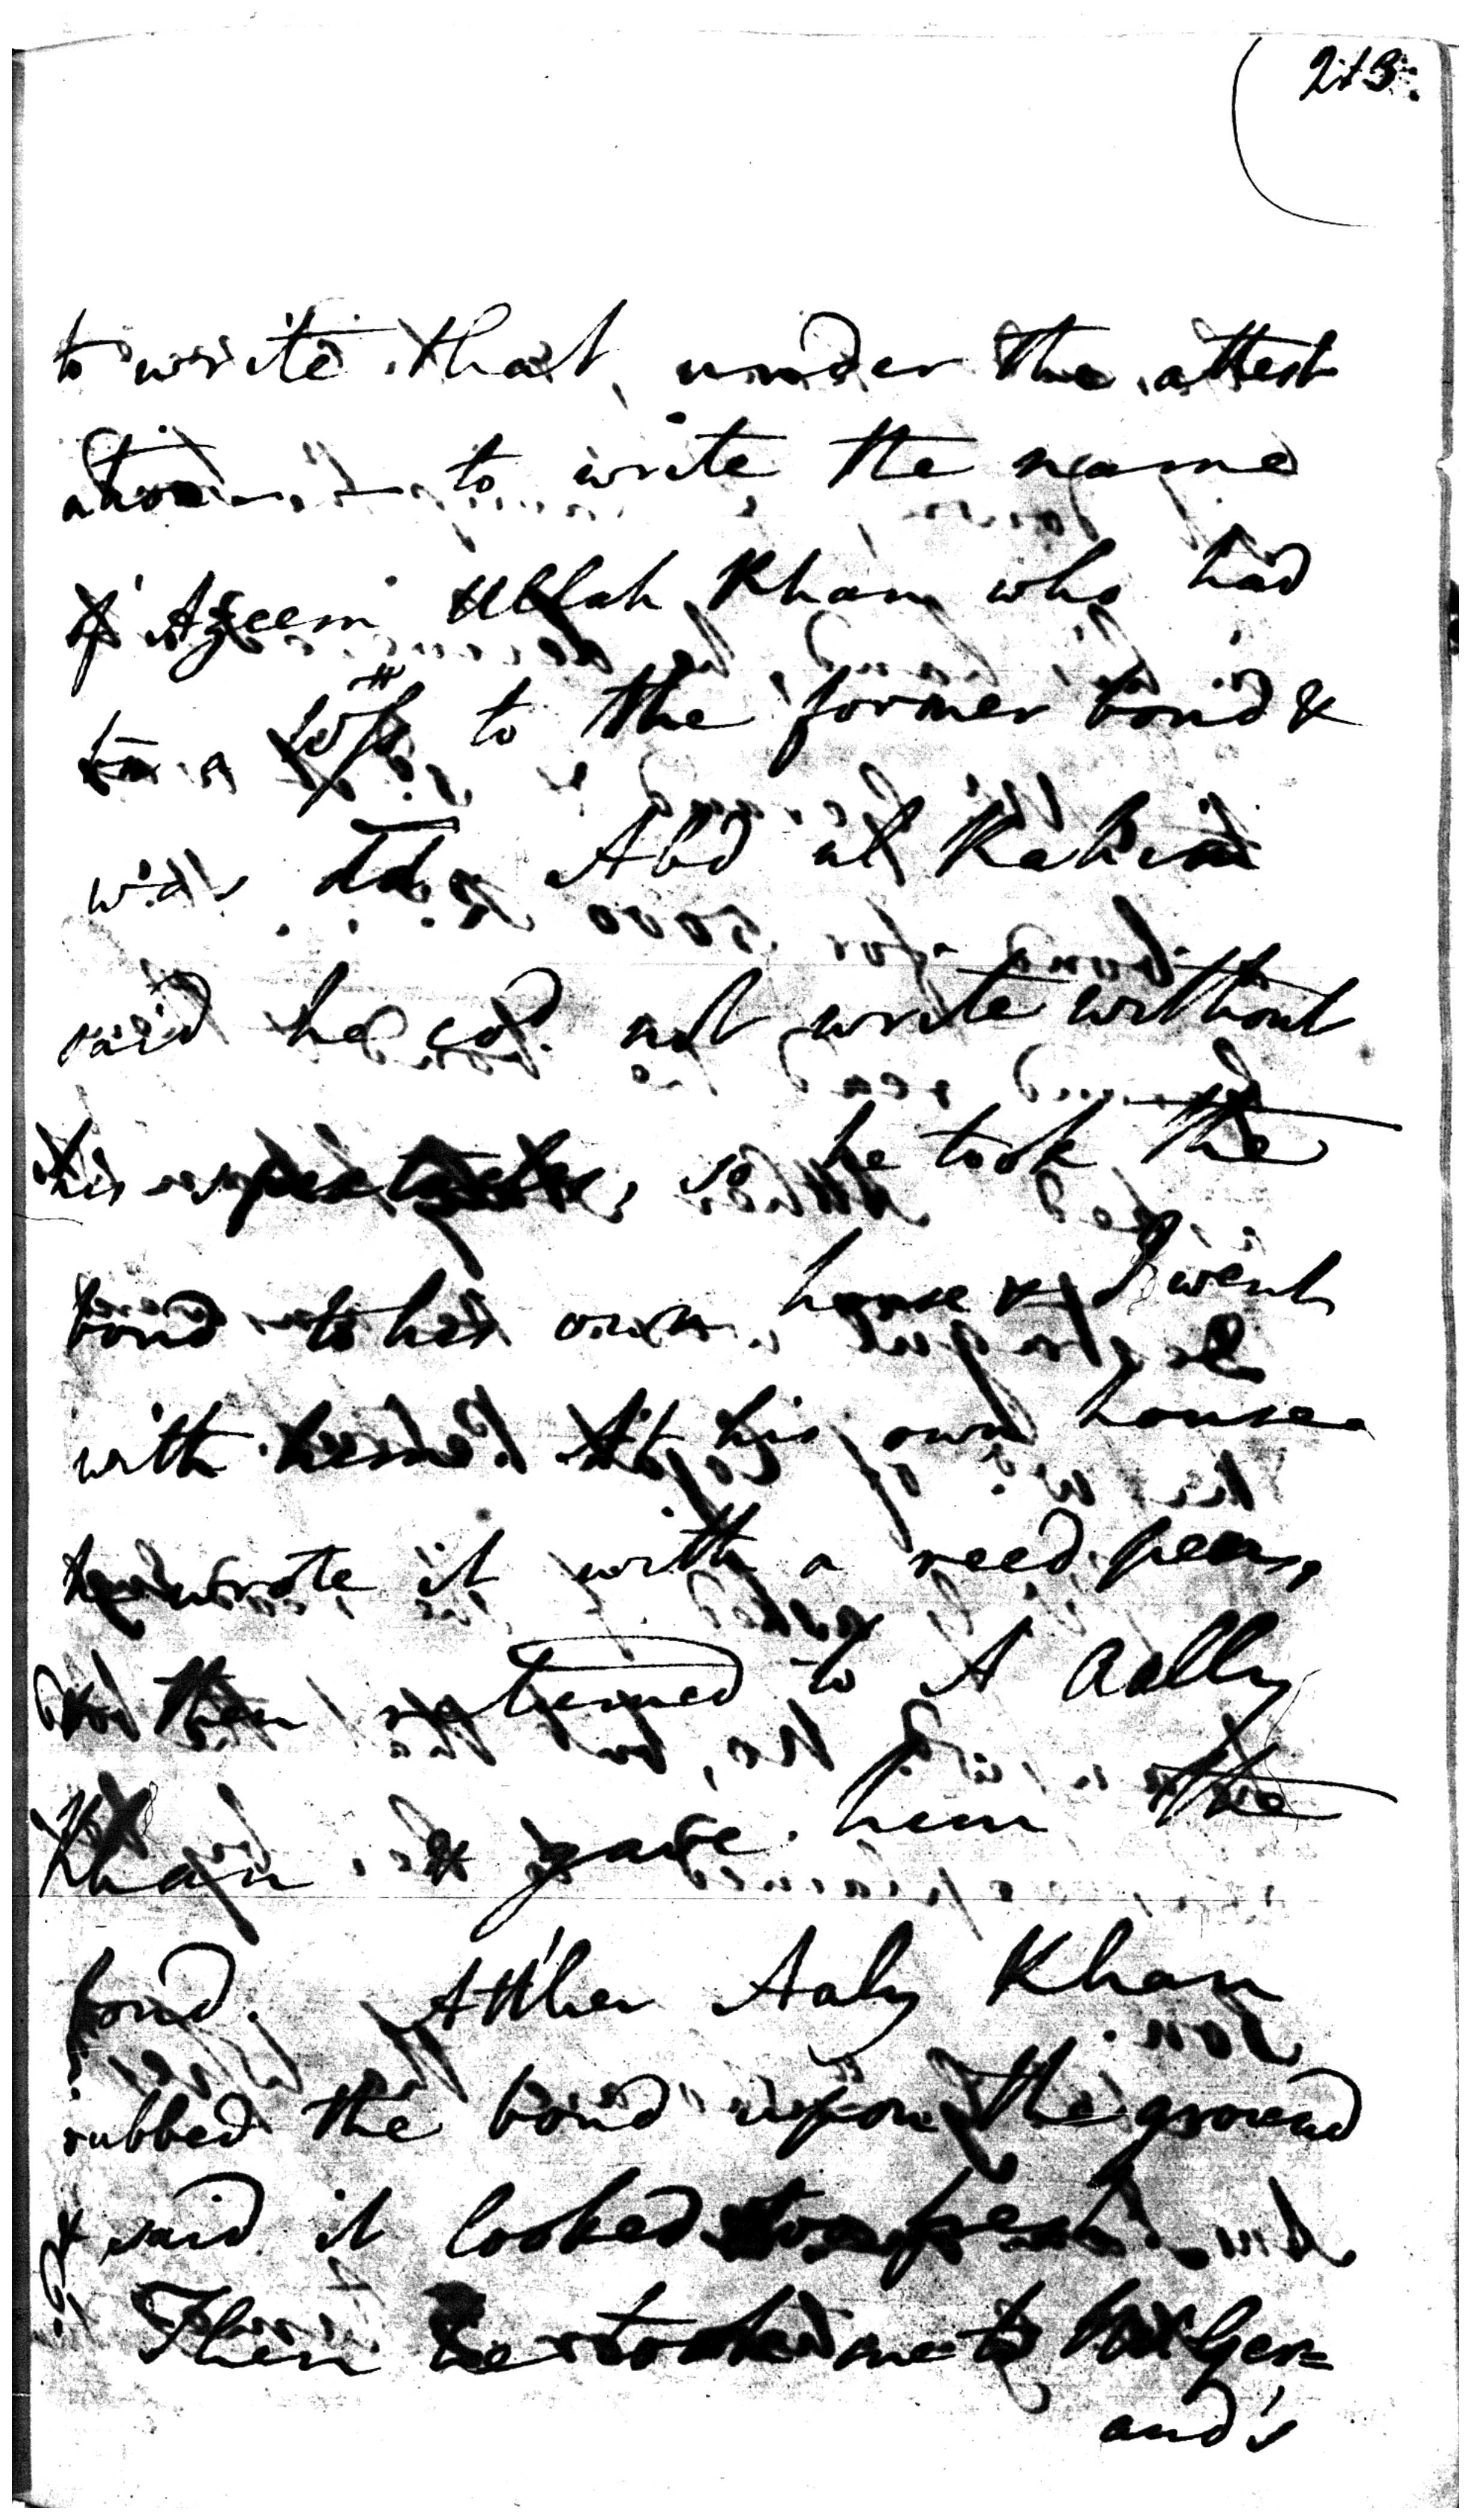 213.
to write that, under the attest
ation - to write the name
of Azeem Ullah Khan who had
been a witn to the former bond &
was dd. Abd ul Rahim
said he cod. not write without
his spectacles, so he took the
bond to his own house & I went
with him. At his own house
he wrote it with a reed pen,
& then returned to A Aally
Khan & gave him the
bond. Atther Aaly Khan
rubbed the bond upon the ground
& said it looked too fresh.
Then he took me to Mr Ger=
and's